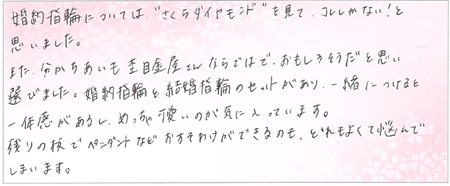 婚約指輪については、"さくらダイヤモンド"を見て、コレしかない!と
思いました。
また、分かちあいも杢目金屋さんならではで、おもしろそうだと思い
選びました。婚約指輪と結婚指輪のセットがあり、一緒につけると
一体感があるし、めっちゃ可愛いのが気に入っています。
残りの板でペンダントなどおすそわけができるのも、どれもよくて悩んで
しまいます。